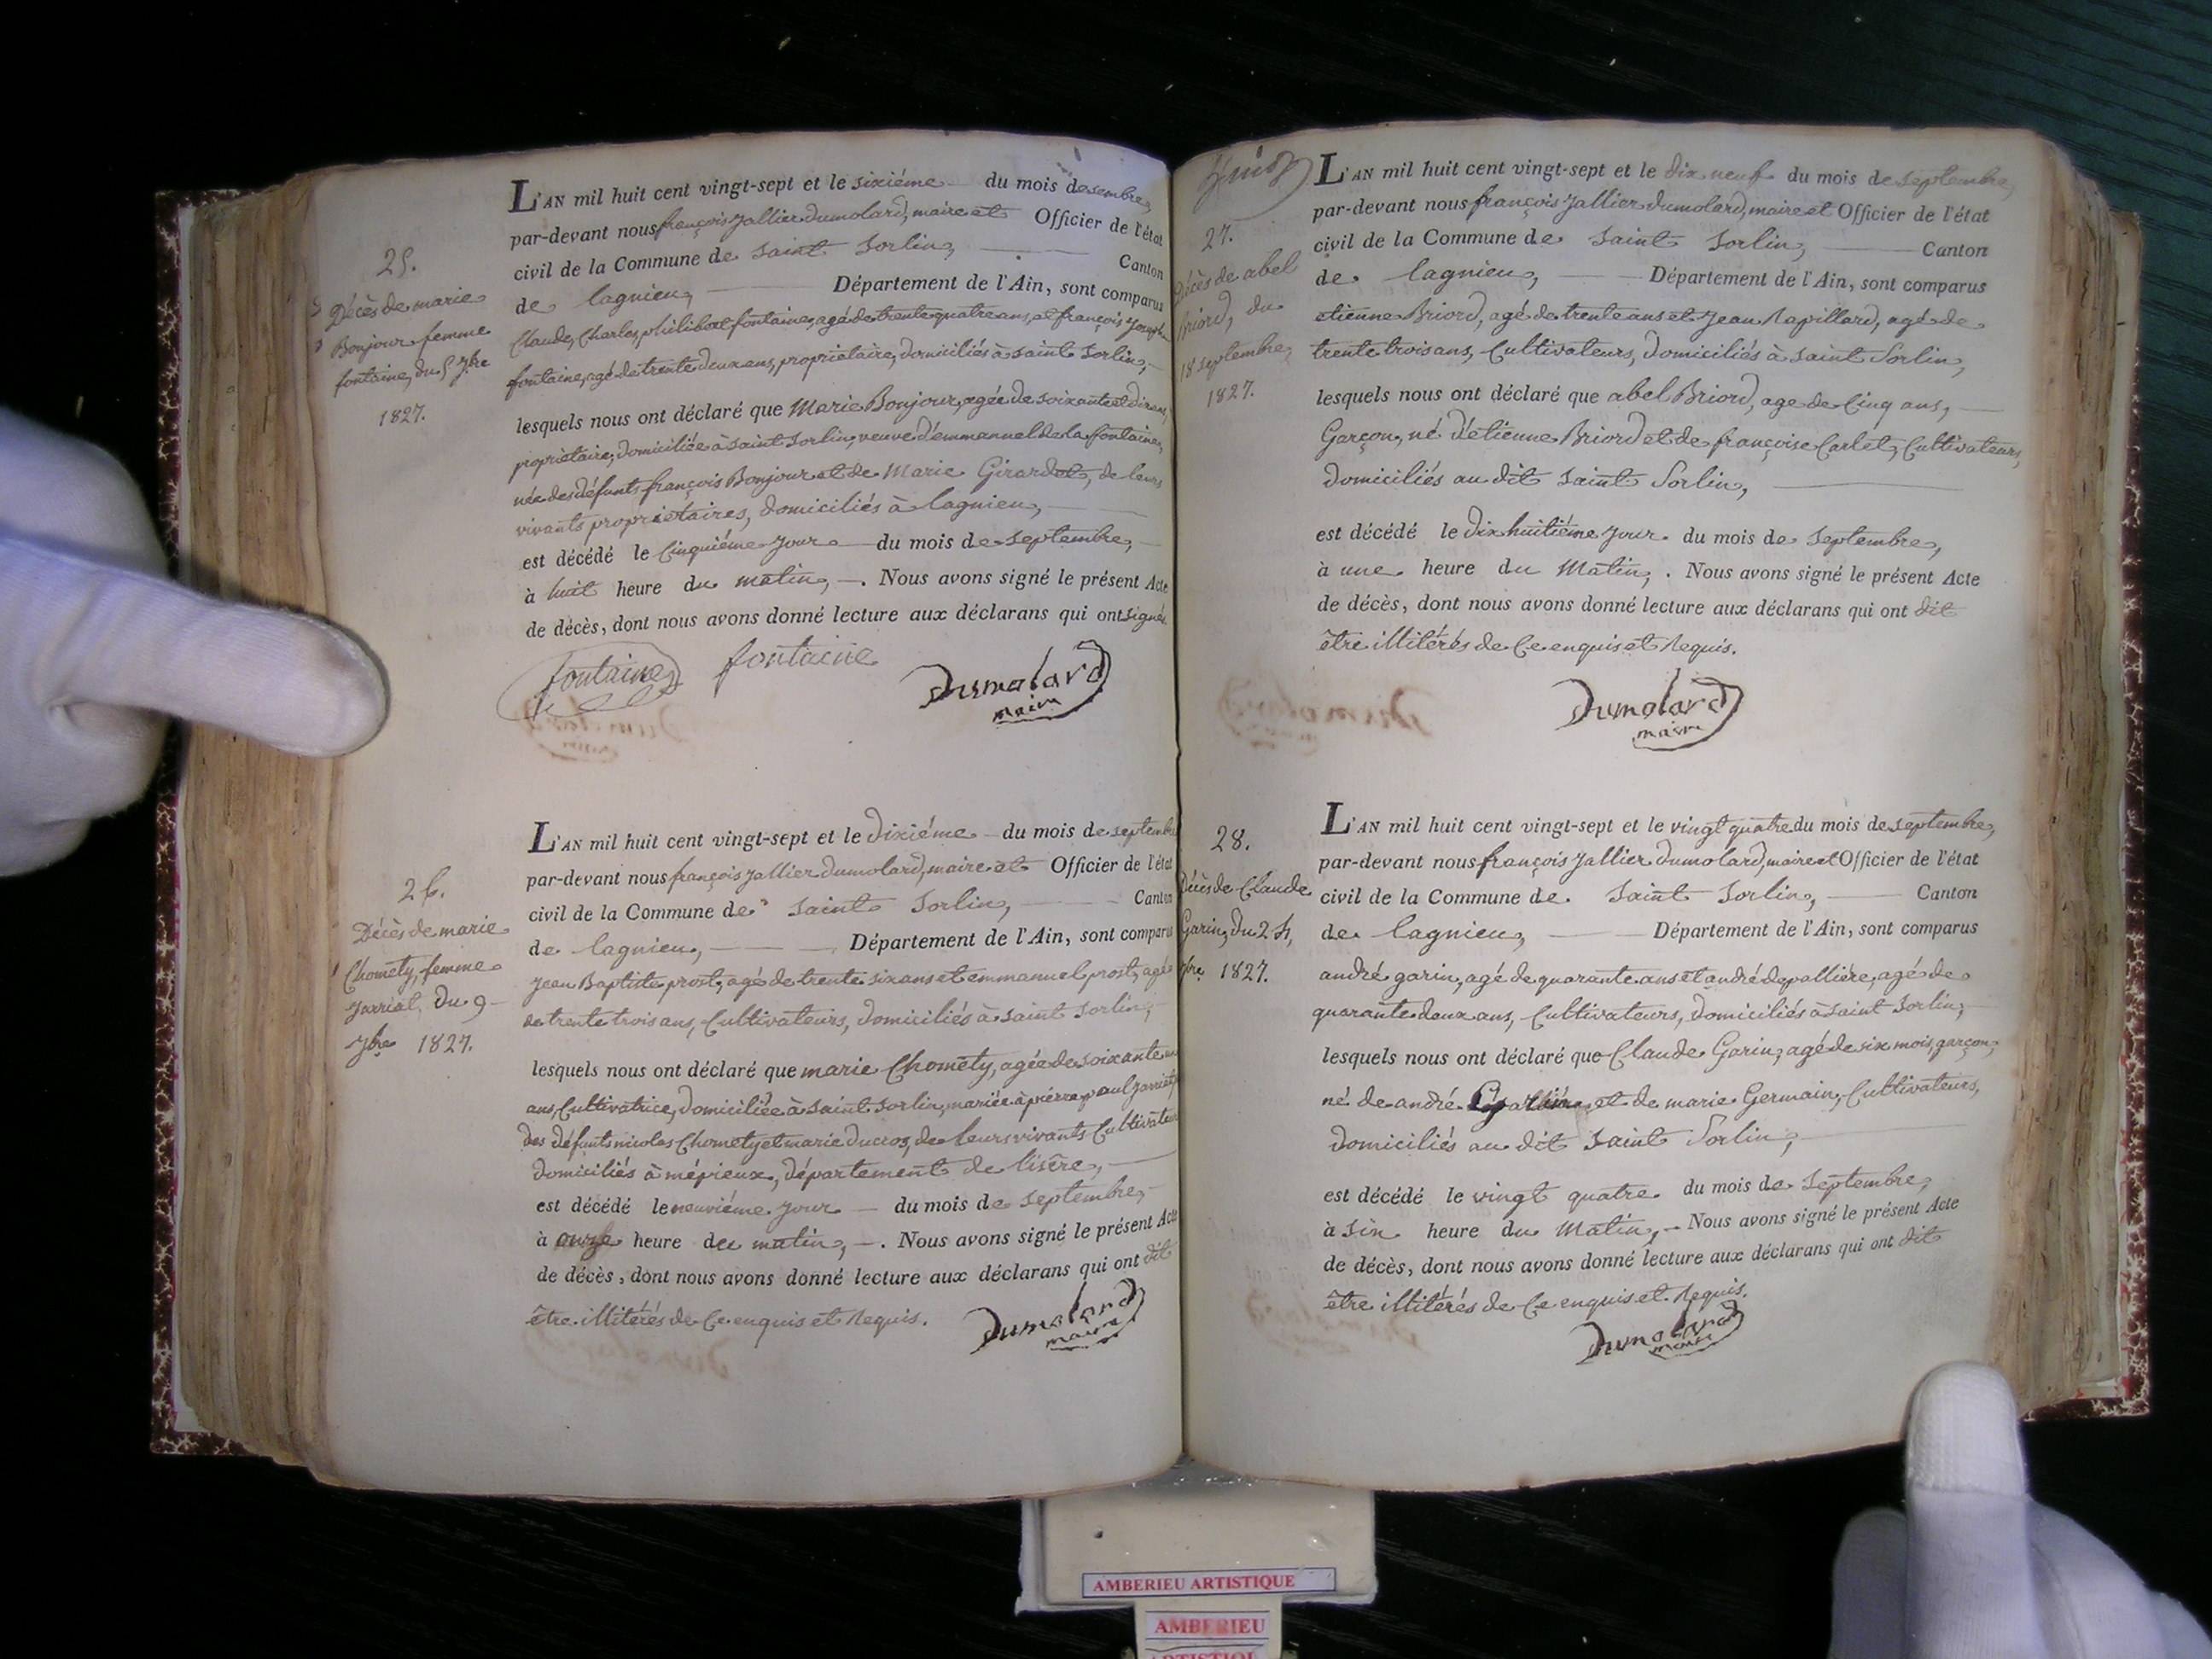 25.
Décès de marie
Bonjour femme
fontaine, du 5 7bre
1827.
L'AN mil huit cent vingt-sept et le sixiéme du mois de
par-devant nous françois jallier dumolard, maire et Officier de l'état
civil de la Commune de Saint Sorlin, Canton
de lagnieu, Département de l'Ain, sont comparus
Claude, Charles, philibert fontaine, agé de trente quatre ans, et françois joseph
fontaine, agé de trente deux ans, propriétaire, domiciliés à saint Sorlin,
lesquels nous ont déclaré que Marie Bonjour, agée de soixante et dix ans,
propriétaire, domiciliée à saint Sorlin, veuve d'emmanuel de la fontaine,
née des défunts françois Bonjour et de Marie Girardet, de leurs
vivants propriétaires, domiciliés à lagnieu,
est décédé le Cinquiéme jour du mois de septembre,
à huit heure du matin, . Nous avons signé le présent Acte
de décès, dont nous avons donné lecture aux déclarans qui ont signé.
fontaine fontaine Dumolard
maire
26.
Décès de marie
Chomety, femme
jarriat, du 9
7bre 1827.
L'AN mil huit cent vingt-sept et le dixiéme du mois de septembre
par-devant nous françois jallier dumolard, maire et Officier de l'état
civil de la Commune de Saint Sorlin, Canton
de lagnieu, Département de l'Ain, sont comparus
jean Baptiste prost, agé de trente six ans et emmanuel prost, agé
de trente trois ans, Cultivateurs, domiciliés à saint Sorlin,
lesquels nous ont déclaré que marie Chomety, agée de soixante un
ans, Cultivatrice, domiciliée à saint Sorlin, mariée à piérre paul jarriat,
des défunts nicolas Chomety et marie ducroz, de leurs vivants Cultivateurs
domiciliés à mépieux, département de l'isére,
est décédé le neuviéme jour du mois de septembre,
à onze heure du matin, . Nous avons signé le présent Acte
de décès, dont nous avons donné lecture aux déclarans qui ont dit
être illitérés de Ce enquis et Requis.
Dumolard
maire
27.
Décès de abel
Briord, du
18 septembre,
1827.
L'AN mil huit cent vingt-sept et le dix neuf du mois de septembre,
par-devant nous françois jallier dumolard, maire et Officier de l'état
civil de la Commune de Saint Sorlin, Canton
de lagnieu, Département de l'Ain, sont comparus
etienne Briord, agé de trente ans et jean Rapillard, agé de
trente trois ans, Cultivateurs, domiciliés à saint Sorlin,
lesquels nous ont déclaré que abel Briord, age de Cinq ans,
Garçon, né d'étienne Briord et de françoise Carlet, Cultivateurs,
domiciliés au dit saint Sorlin,
est décédé le dix huitiéme jour du mois de septembre,
à une heure du Matin, . Nous avons signé le présent Acte
de décès, dont nous avons donné lecture aux déclarans qui ont dit
être illitérés de Ce enquis et Requis.
Dumolard
maire
28.
Décès de Claude
Garin, du 24,
7bre 1827.
L'AN mil huit cent vingt-sept et le vingt quatre du mois de septembre,
par-devant nous françois jallier dumolard, maire et Officier de l'état
civil de la Commune de Saint Sorlin, Canton
de lagnieu, Département de l'Ain, sont comparus
andré garin, agé de quarante ans et andré depalliére, agé de
quarante deux ans, Cultivateurs, domiciliés à saint Sorlin,
lesquels nous ont déclaré que Claude Garin, agé de six mois, garçon,
né de andré et de marie Germain, Cultivateurs,
domiciliés au dit saint Sorlin,
est décédé le vingt quatre du mois de septembre,
à six heure du Matin, . Nous avons signé le présent Acte
de décès, dont nous avons donné lecture aux déclarans qui ont dit
être illitérés de Ce enquis et Requis.
Dumolard
maire
AMBERIEU ARTISTIQUE
AMBERIEU
ARTISTIQUE